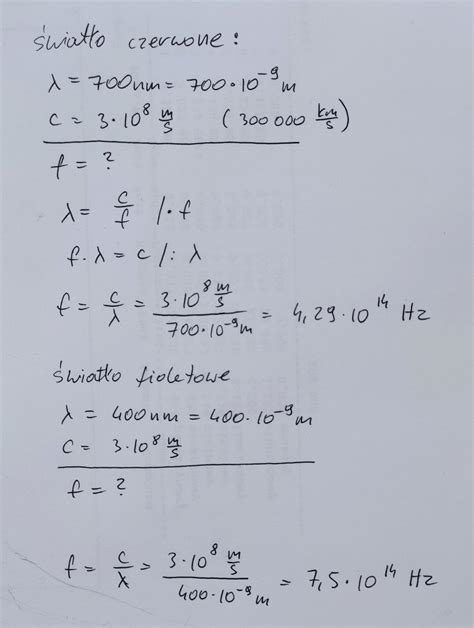 światło czerwone:
λ = 700nm = 700·10⁻⁹m
c = 3·10⁸ m/s (300 000 km/s)
f = ?
λ = c/f /·f
f·λ = c /: λ
f = c/λ = 3·10⁸ m/s / 700·10⁻⁹m = 4,29·10¹⁴ Hz
światło fioletowe
λ = 400nm = 400·10⁻⁹m
c = 3·10⁸ m/s
f = ?
f = c/λ = 3·10⁸ m/s / 400·10⁻⁹m = 7,5·10¹⁴ Hz